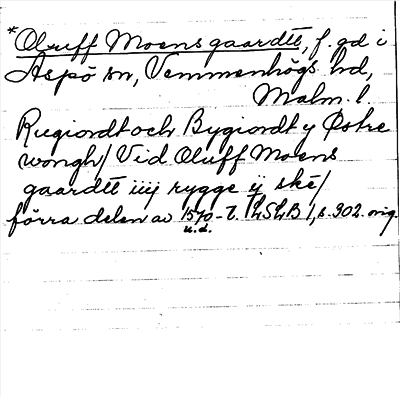 *Oluff Moens gaardtt, f. gd i
Äspö sn, Vemmenhögs hd,
Malm. l.
Rugiordt och Bygiordt y Østre
wongh/ Vid Oluff Moens
gaardtt iiij rygge ij ske/
förra delen av 1570-t. LSLB 1, s. 302. orig.
u.d.